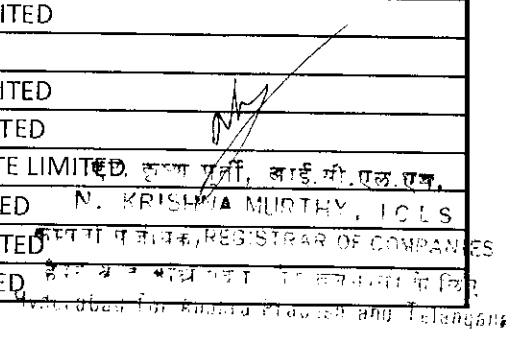 ITED
ITED
TED
TE LIMITED एन. कृष्ण मूर्ती, आई.सी.एल.एस.
ED N. KRISHNA MURTHY, ICLS
TED REGISTRAR OF COMPANIES
ED
Hyderabad for Andhra Pradesh and Telangana